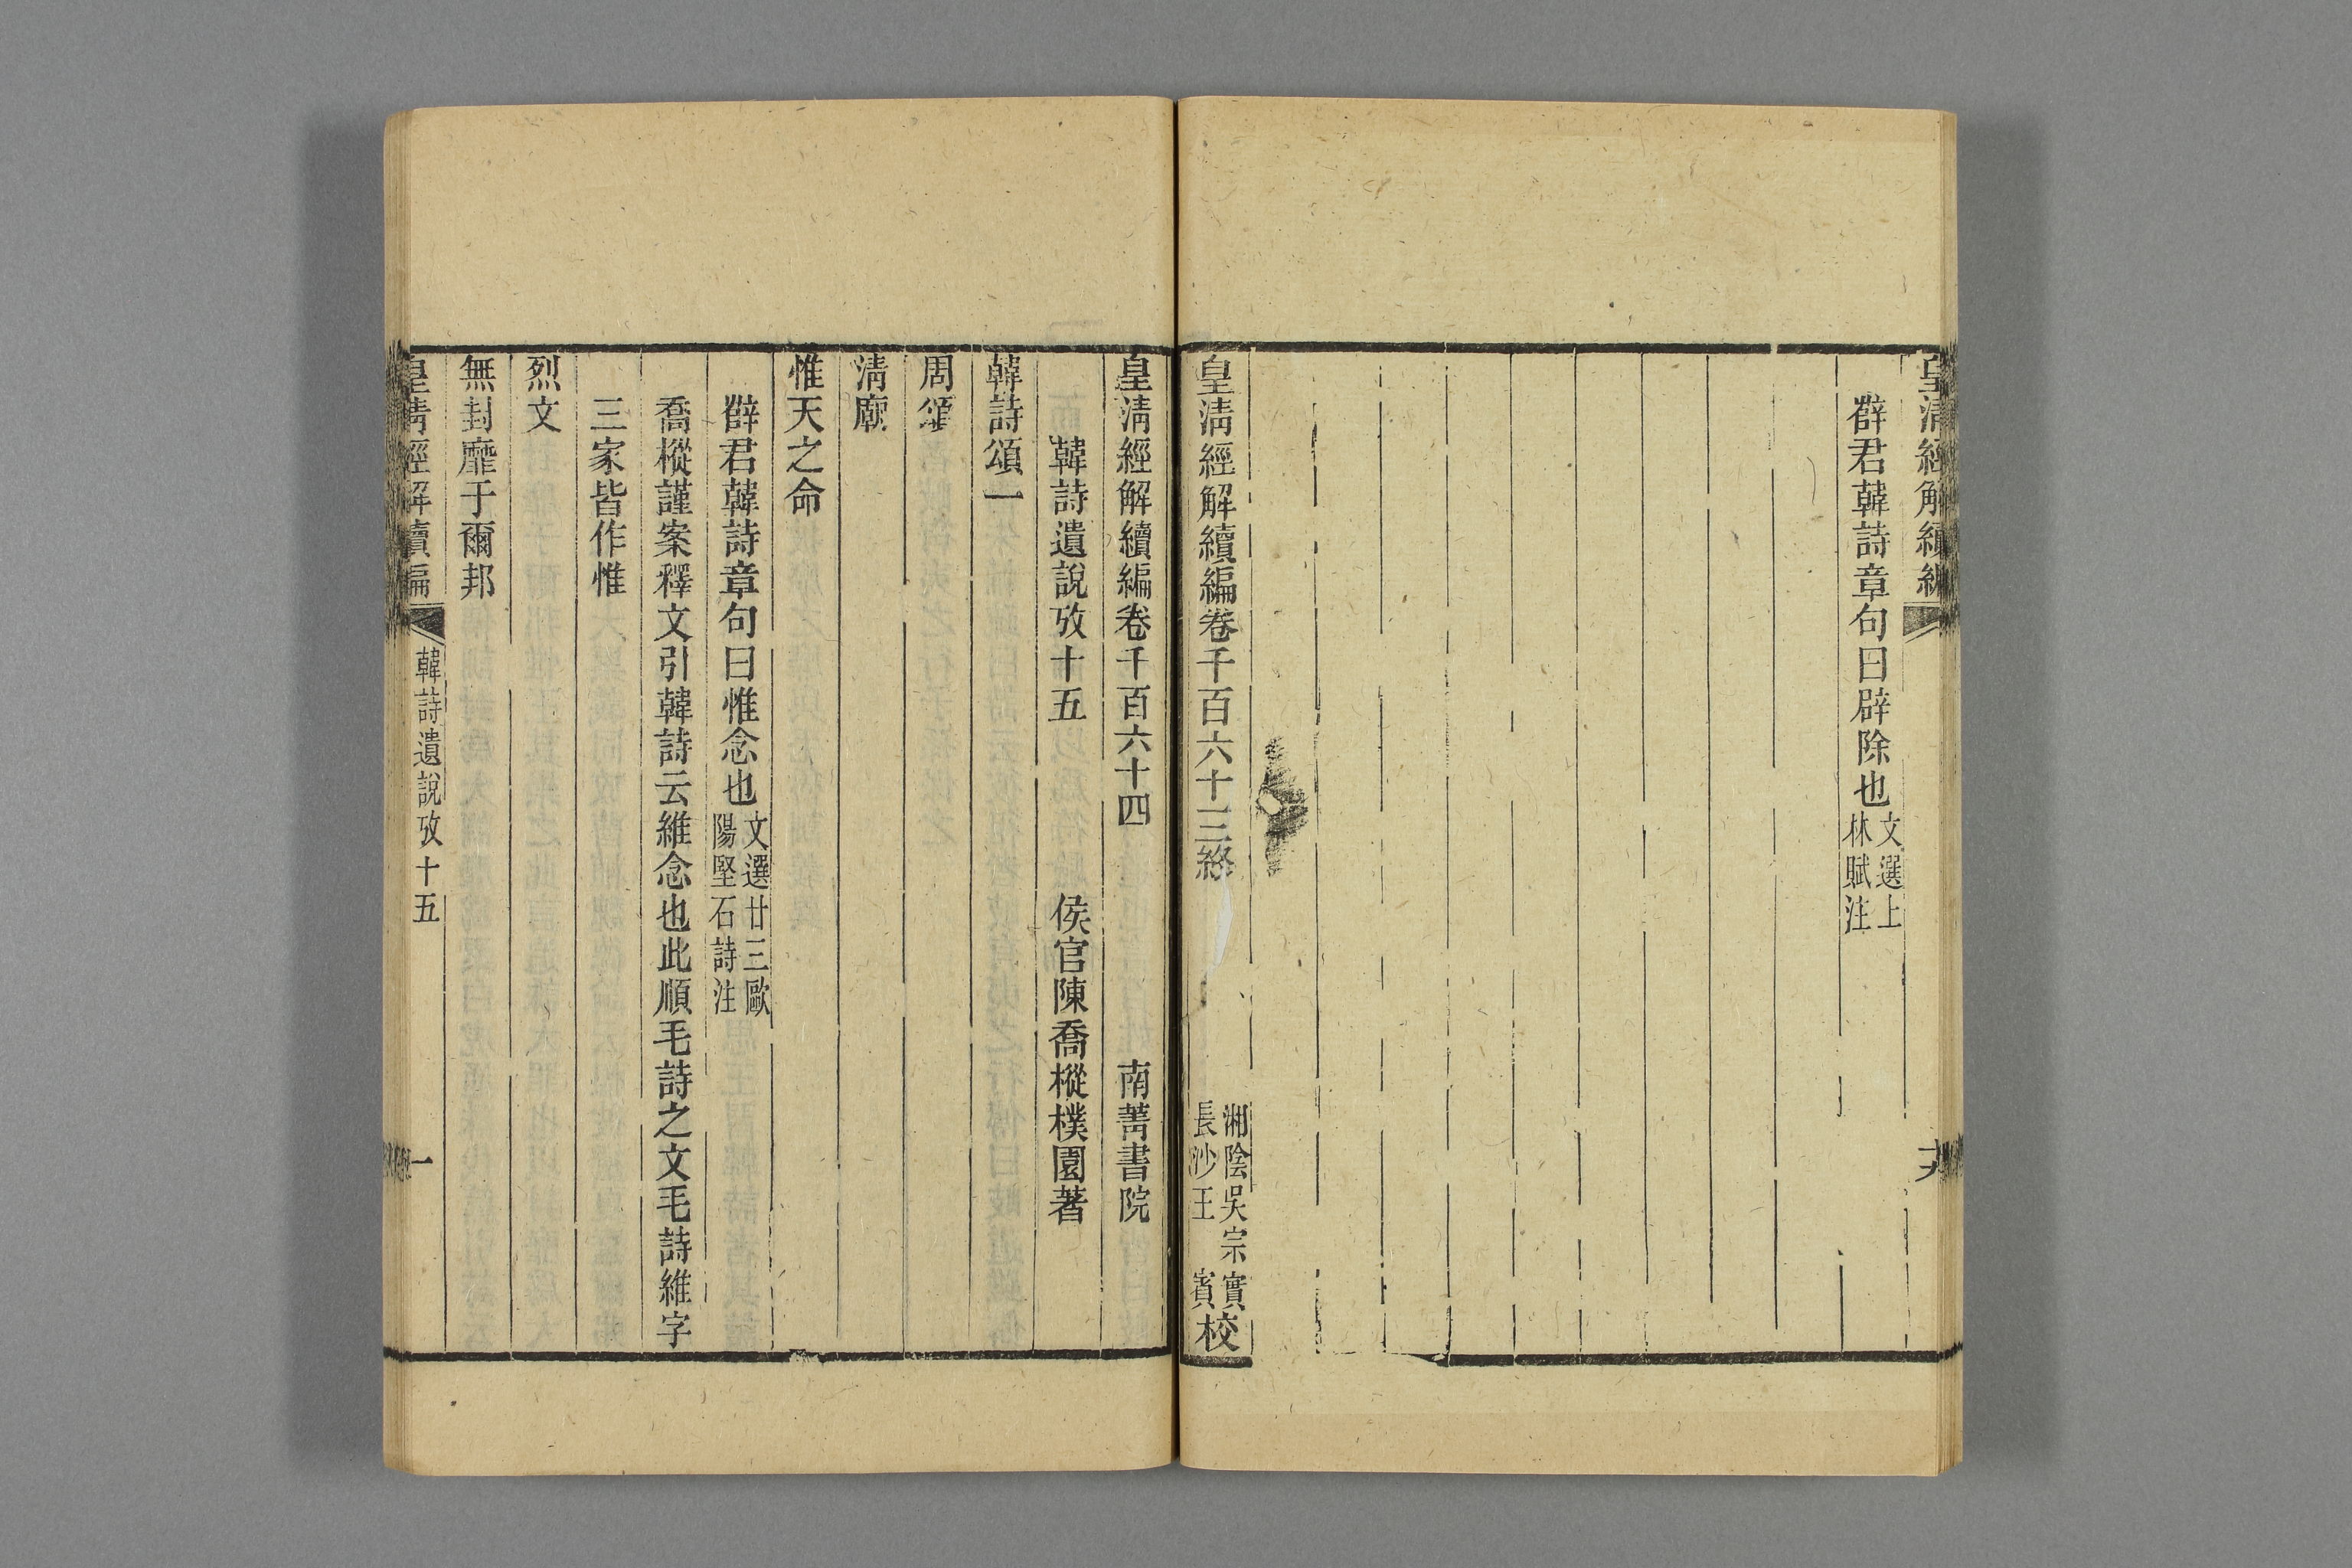 皇清經解續編
薛君韓詩章句曰辟除也文選上林賦注
皇清經解續編卷千百六十三終
湘陰吳宗實
長沙王 賓校
皇清經解續編卷千百六十四 南菁書院
韓詩遺說攷十五 侯官陳喬樅樸園著
韓詩頌一
周頌
清廟
惟天之命
薛君韓詩章句曰惟念也文選廿三歐陽堅石詩注
喬樅謹案釋文引韓詩云維念也此順毛詩之文毛詩維字
三家皆作惟
烈文
無封靡于爾邦
皇清經解續編 韓詩遺說攷十五 一